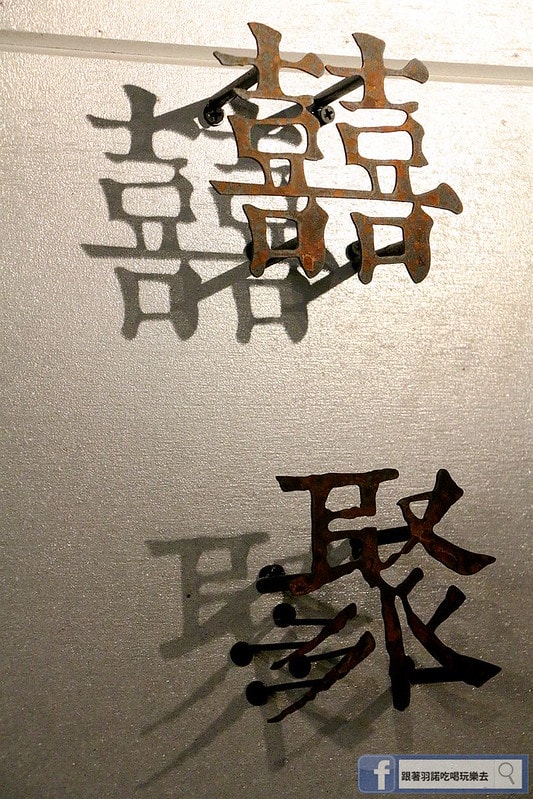 囍
聚
跟著羽諾吃喝玩樂去